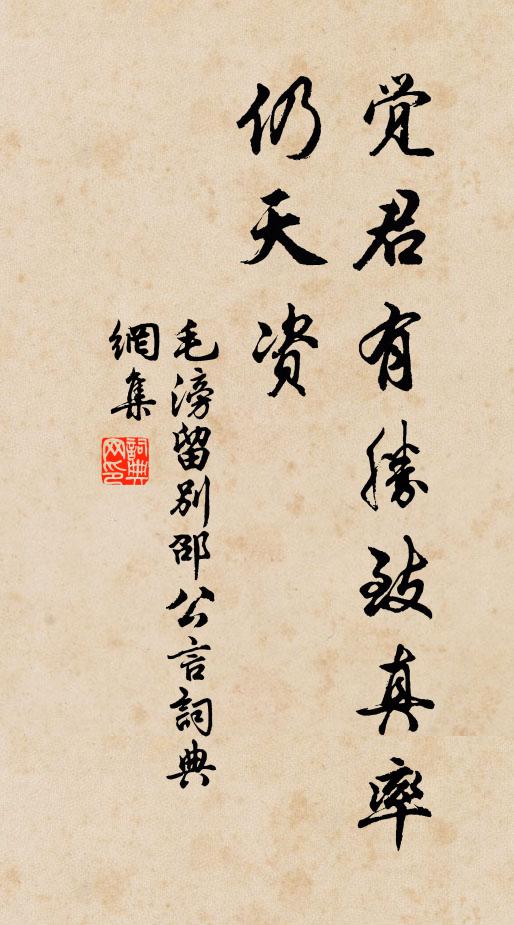 觉君有勝致真率
仍天资
毛滂留别邵公言詞典
網集
詞典
网印